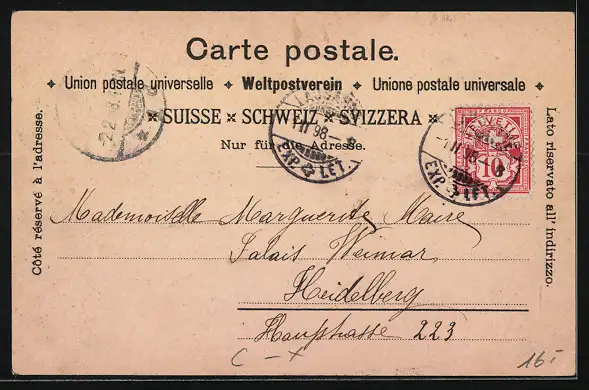 Carte postale.
Union postale universelle ✦ Weltpostverein ✦ Unione postale universale
SUISSE × SCHWEIZ × SVIZZERA
Nur für die Adresse.
Côté réservé à l'adresse.
Lato riservato all' indirizzo.
HELVETIA
10
II 98
EXP. LET.
II 98
EXP. LET.
Mademoiselle Marguerite Maire
Palais Weimar
Heidelberg
Hauptstrasse 223
C – x
16.-